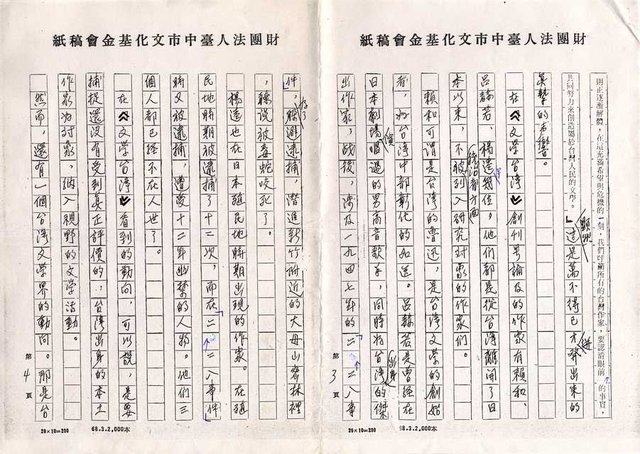 財團法人臺中市文化基金會稿紙
正逐漸解體,在這充滿希望與危機的一刻,我們呼籲所有的台灣作家,要認清眼前的事實,
共同努力來創造屬於台灣人民的文學。」這是萬不得已才發出來的
真摯的聲響。
在《文學台灣》創刊號論及的作家有賴和、
呂赫若、楊逵幾位。他們都是從台灣離開了日
統治者方面
本以來,不被列入研究對象的作家們。
賴和可謂是台灣的魯迅,是台灣文學的創始
者,為台灣中部彰化的。呂赫若是曾經在
日本劇場過的男高音歌手,同時為台灣的傑
出身
出作家,戰後,涉及一九四七年的二、二八事
第3頁
20×10=200 68.3.2,000本
財團法人臺中市文化基金會稿紙
件,逃避逮捕,潛進新竹附近的大母山密林裡
,聽說被毒蛇咬死了。
楊逵也在日本殖民地時期出現的作家。在殖
民地時期被逮捕了十二次,而在二、二八事件
時又被逮捕,遭受十二年幽禁的人物。他們三
個人都已經不在人世了。
在《文學台灣》看到的動向,可以說,是要
捕捉還沒有受到真正評價的,台灣出身的本土
作家為對象,納入視野的文學活動。
然而,還有一個台灣文學界的動向。那是台
第4頁
20×10=200 68.3.2,000本